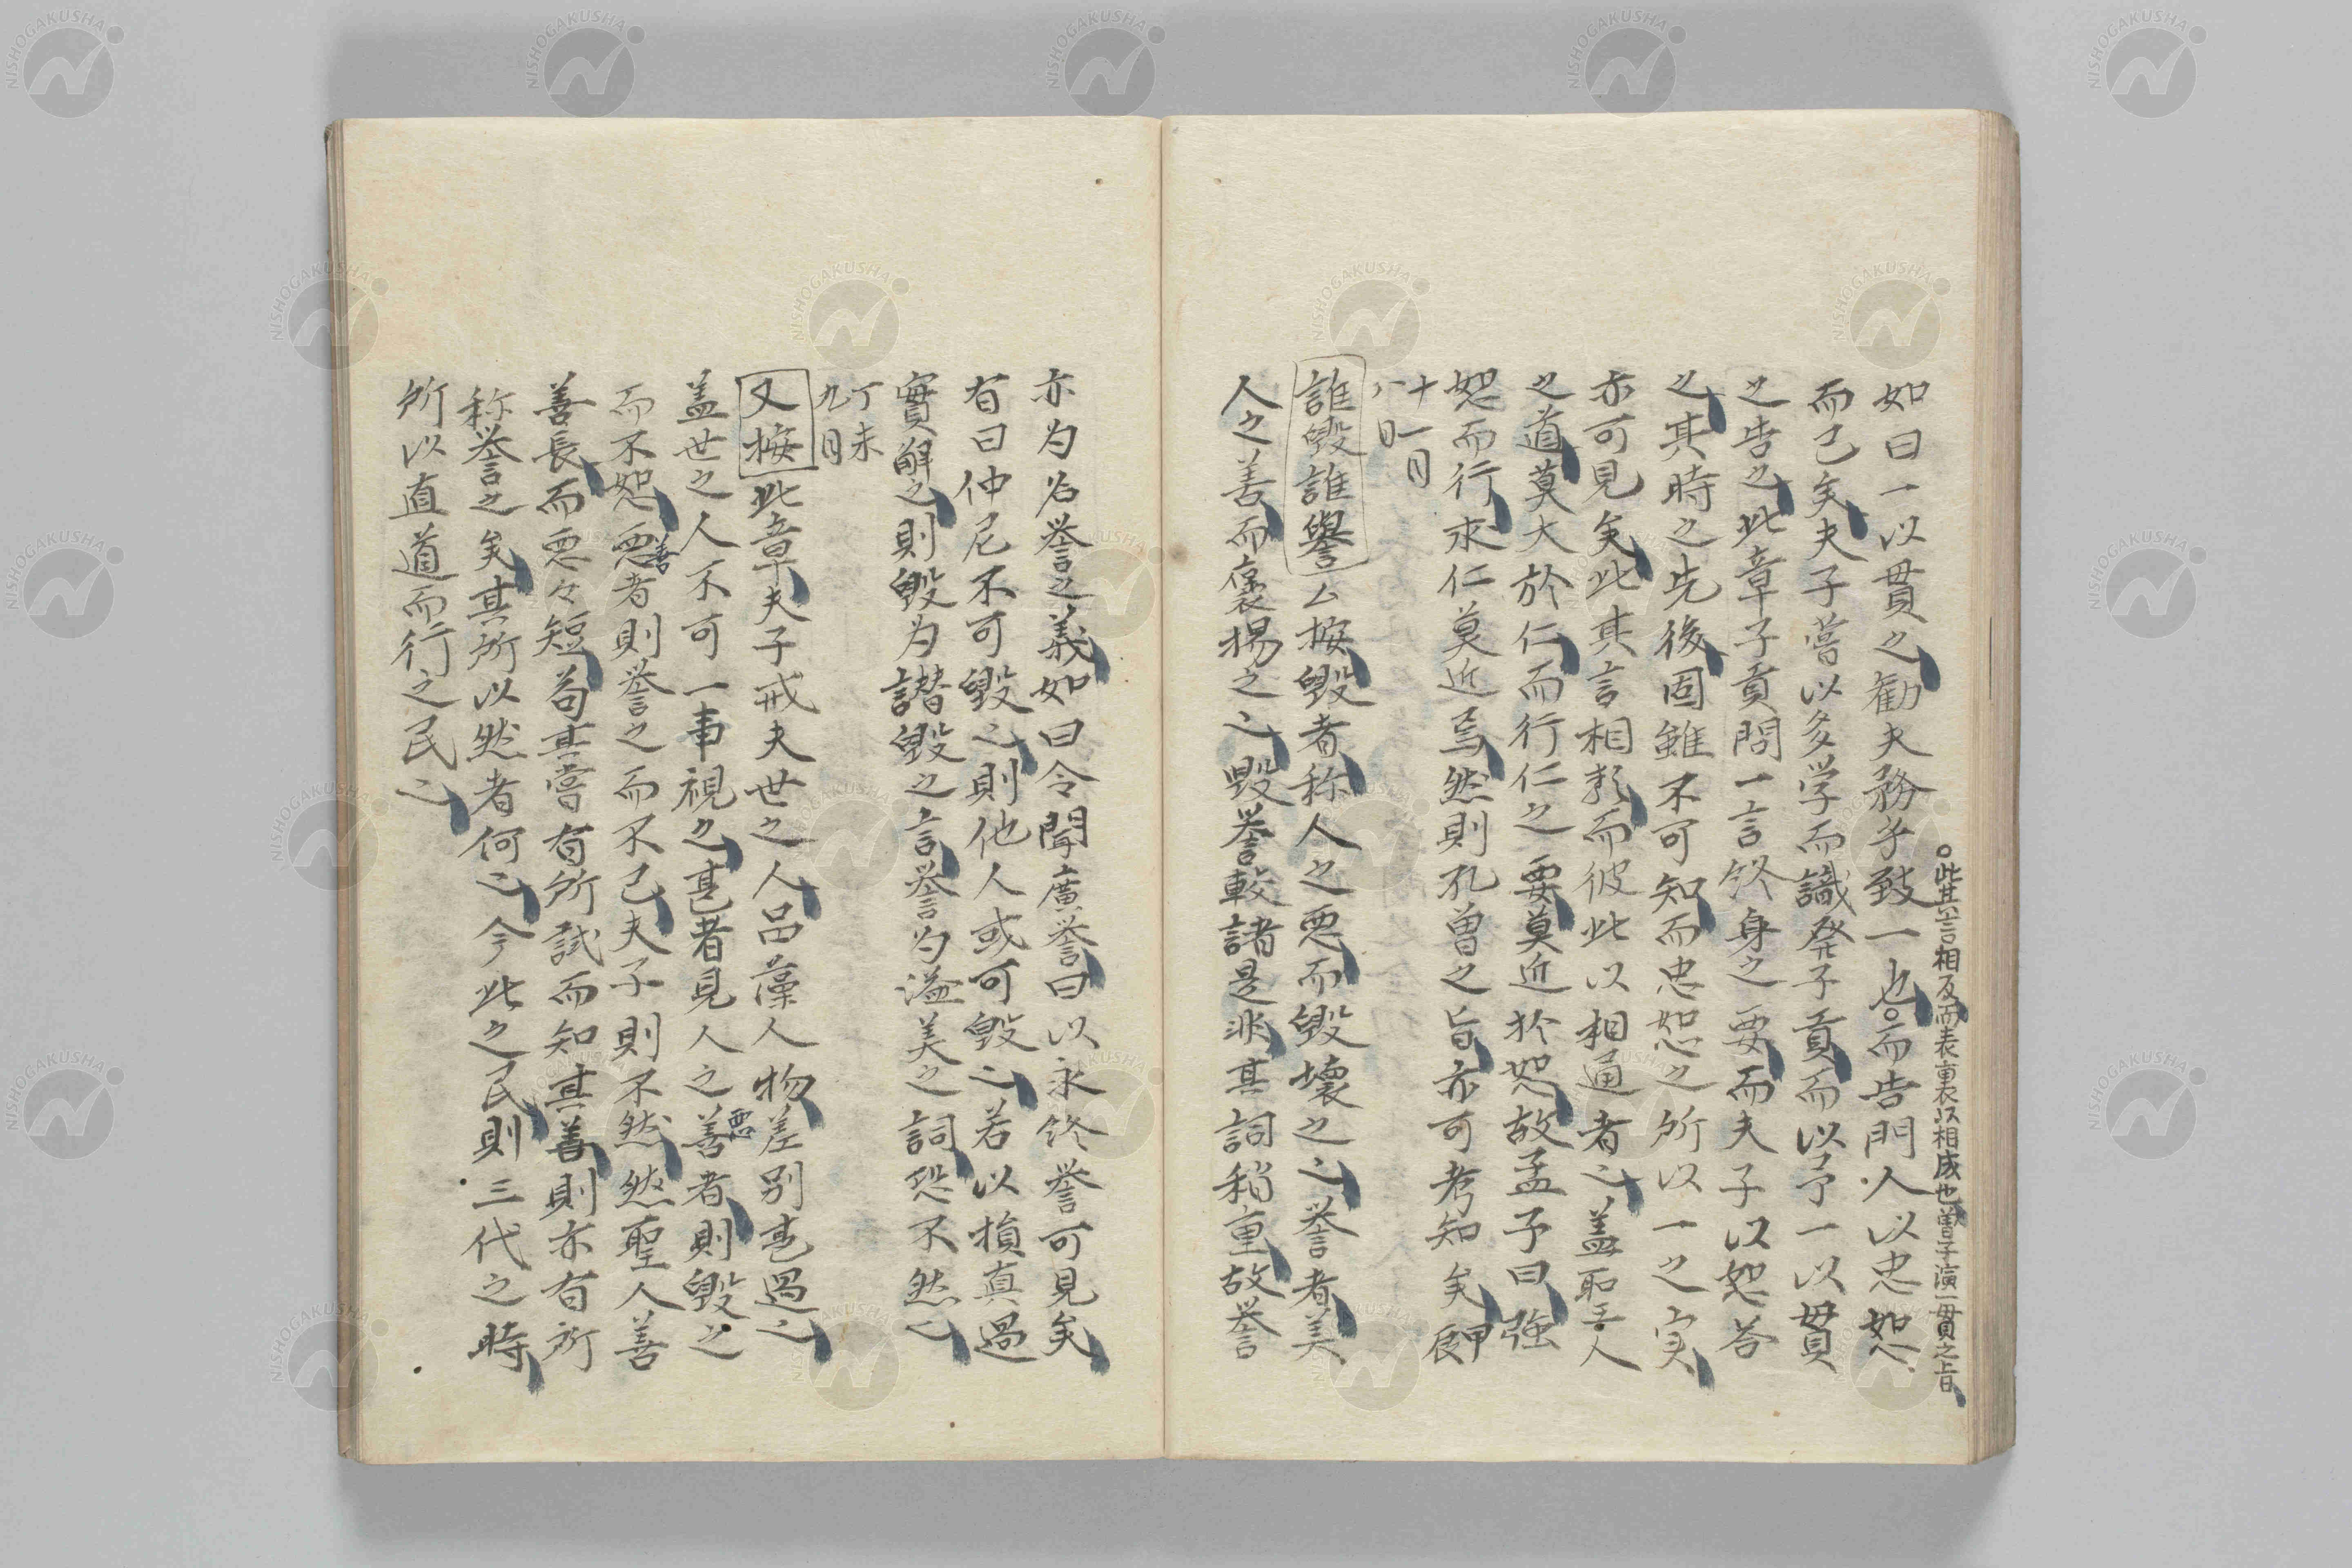 如曰一以貫之勸夫務乎致一也○而告門人以忠恕
○此其言相反而表裏以相成也曽子演一貫之旨
而已矣夫子嘗以多学而識発子貢而以予一以貫
之告之此章子貢問一言終身之要而夫子以恕答
之其時之先後固雖不可知而忠恕之所以一之実
亦可見矣此其言相類而彼此以相通者也盖聖人
之道莫大於仁而行仁之要莫近於恕故孟子曰強
恕而行求仁莫近焉然則孔曽之旨亦可考知矣
十一月
八日
誰毀誰譽 按毀者称人之悪而毀壊之也誉者美
人之善而褒揚之也毀誉較諸是非其詞稍重故誉
亦为名誉之義如曰令聞廣誉曰以永終誉可見矣
有曰仲尼不可毀也則他人或可毀也若以損真過
實解之則毀为譖毀之言誉为溢美之詞恐不然也
丁未
九月
又按此章夫子戒夫世之人品藻人物差別甚過也
盖世之人不可一事視之甚者見人之善者則毀之
悪
而不恕悪者則誉之而不已夫子則不然然聖人善
善
善長而悪々短苟其嘗有所試而知其善則亦有所
称誉之矣其所以然者何也今此之民則三代之時
所以直道而行之民也